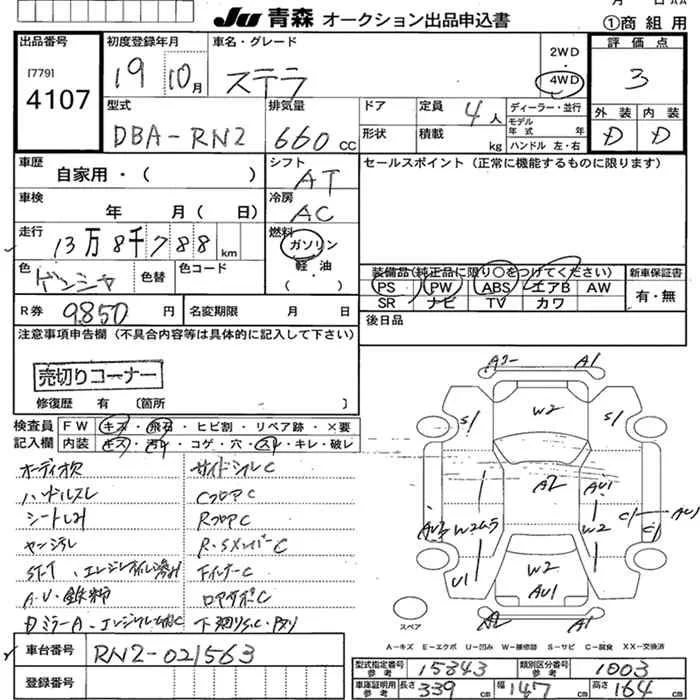 JU 青森 オークション出品申込書
①商組用
出品番号 初度登録年月 車名・グレード 2WD 評価点
[779] 19 10月 ステラ 4WD 3
4107
型式 排気量 ドア 定員 4人 ディーラー・並行 外装 内装
DBA-RN2 660 CC 形状 積載 kg モデル年式 年 D D
ハンドル 左・右
車歴 自家用・( ) シフト AT セールスポイント(正常に機能するものに限ります)
車検 年 月( 日) 冷房 AC
走行 13万8千788 km 燃料 ガソリン
軽・油
( )
色 色替 色コード
装備品(純正品に限り○をつけてください) 新車保証書
PS PW ABS エアB AW 有・無
SR ナビ TV カワ
R券 9850 円 名変期限 月 日 後日品
注意事項申告欄(不具合内容等は具体的に記入して下さい)
売切りコーナー
修復歴 有 〔箇所 〕
検査員 FW キズ・飛石・ヒビ割・リペア跡・×要
記入欄 内装 キズ・汚れ・コゲ・穴・スレ・キレ・破レ
オーディオ欠 サイドシルC
ハンドルスレ CフロアC
シートしみ RフロアC
R・SメンバーC
A1
S1 W2 S1
A2 AU1
W2 C1 AU1
U1 W2 AU1
A2 A1
スペア
A-キズ E-エクボ U-凹み W-補修跡 S-サビ C-腐食 XX-交換済
車台番号 RN2-021563
登録番号
型式指定番号 参考 15343 類別区分番号 参考 1003
車庫証明用 参考 長さ 339 cm 幅 147 cm 高さ 164 cm